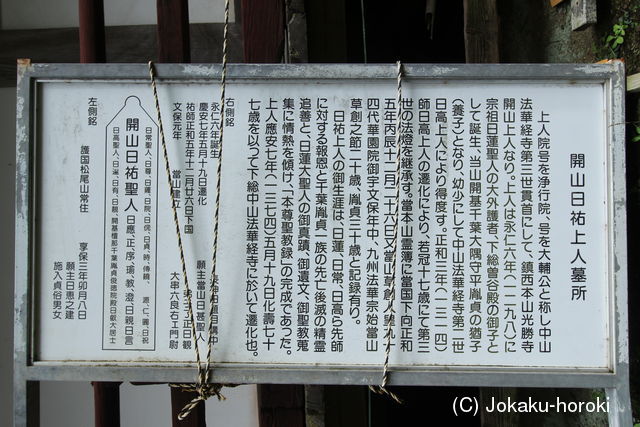 開山日祐上人墓所
上人院号を浄行院、号を大輔公と称し中山
法華経寺第三世貫首にして、鎮西本山光勝寺
開山上人なり。上人は永仁六年(一二九八)に
宗祖日蓮聖人の大外護者、下総曽谷殿の御子と
して誕生、当山開基千葉大隅守平胤貞の猶子
(養子)となり、幼少にして中山法華経寺第二世
日高上人により得度す。正和三年(一三一四)
師日高上人の遷化により、若冠十七歳にて第三
世の法燈を継承す。當本山霊簿に当国下向正和
五年丙辰十二月二十六日又當山草創人皇九十
四代華園院御宇文保年中、九州法華宗始當山
草創之節二十歳、胤貞三十歳と記録有り。
日祐上人の御生涯は、日蓮、日常、日高ら先師
に対する報恩と千葉胤貞一族の先亡後滅の精霊
追善と、日蓮大聖人の御真蹟、御遺文、御聖教蒐
集に情熱を傾け、「本尊聖教録」の完成であった。
上人應安七年(一三七四)五月十九日化壽七十
七歳を以って下総中山法華経寺に於いて遷化也。
右側銘
永仁六年誕生
慶安七年五月十九日遷化
祐師正和五年十二月廿六日下国
文保元年 當山建立
願主當山日甚聖人
正日観
大串六良右エ門尉
日常聖人、日尊、日運、日院、日信、日貞、時、傳饒、源、仁、圓、日祝
開山日祐聖人 日應、正、序、瑜、教、澄、日親、日言
日高聖人、日濵、日有、日親、開基檀那千葉胤貞俊徳院殿日叡大居士
左側銘
護国松尾山常住
享保三年卯月八日
願主日恵之建
施入貞俗男女
(C) Jokaku-horoki